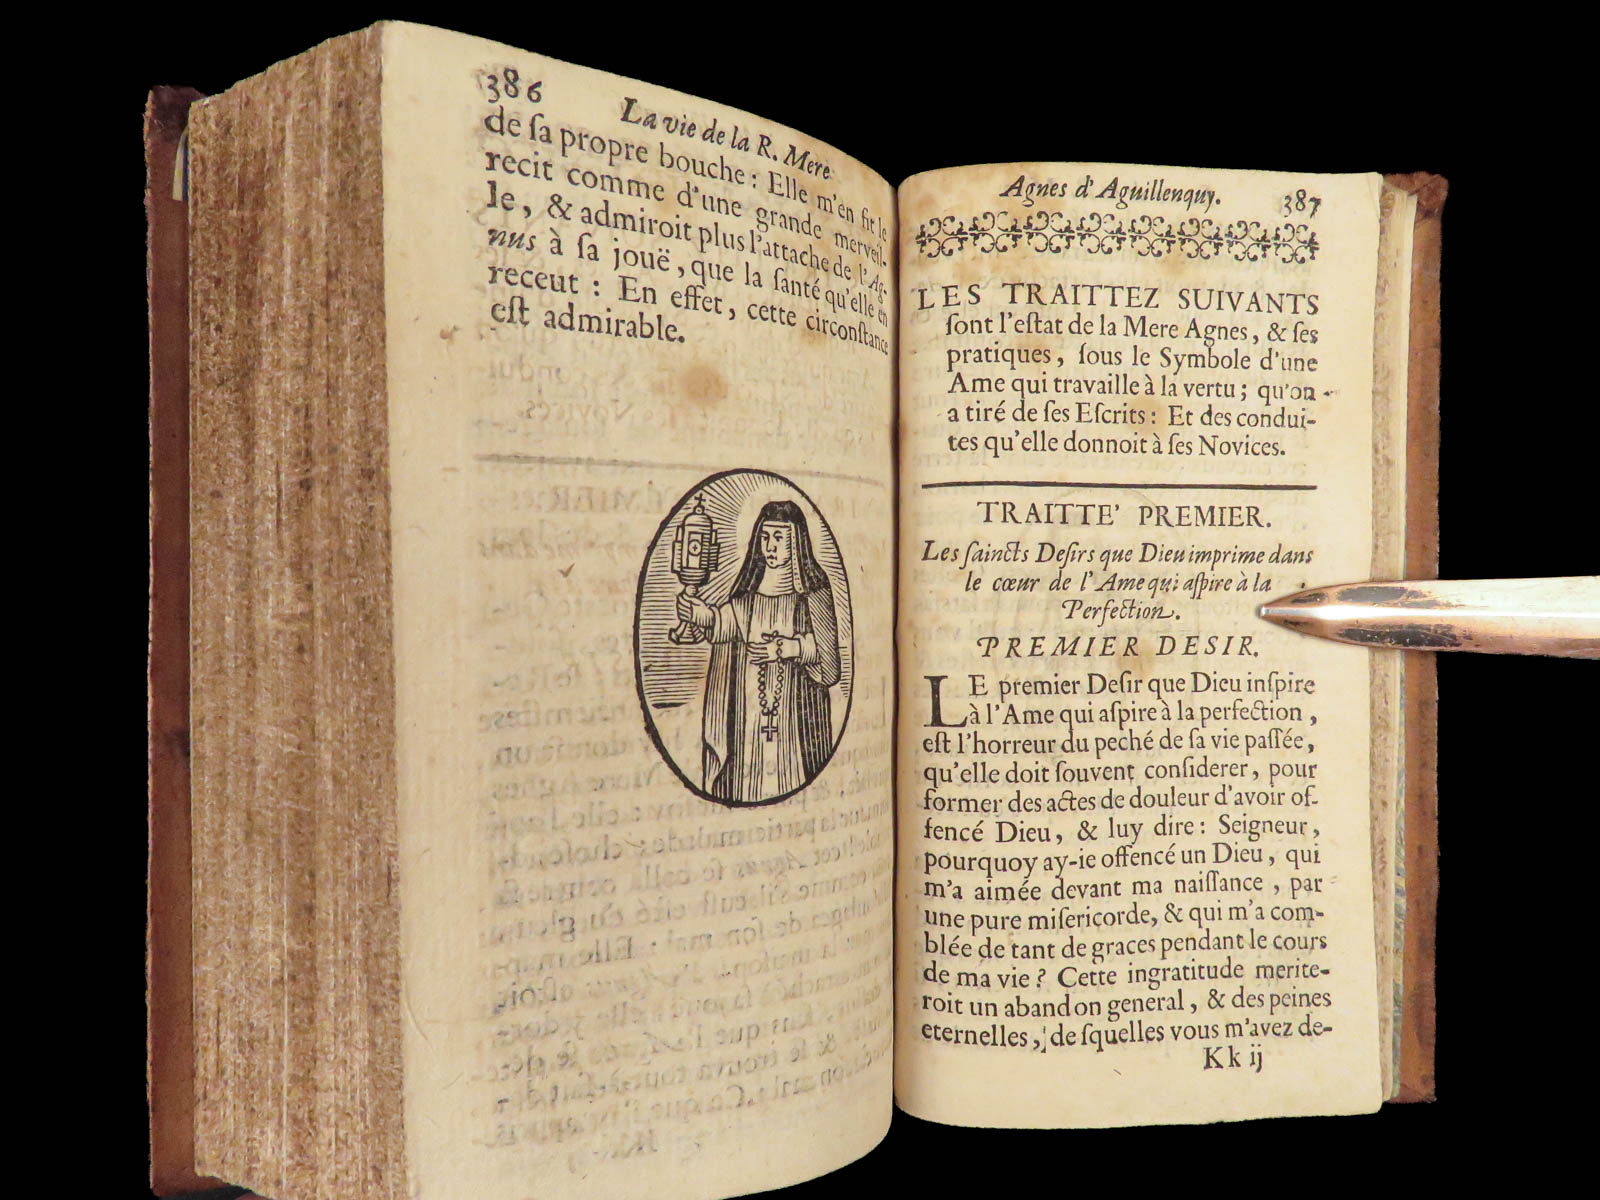 386
La vie de la R. Mere
de ſa propre bouche : Elle m'en fit le
recit comme d'une grande merveil-
le, & admiroit plus l'attache de l'Ag-
nus à ſa jouë, que la ſanté qu'elle en
receut : En effet, cette circonſtance
eſt admirable.
Agnes d'Aguillenquy. 387
LES TRAITTEZ SUIVANTS
ſont l'eſtat de la Mere Agnes, & ſes
pratiques, ſous le Symbole d'une
Ame qui travaille à la vertu ; qu'on
a tiré de ſes Eſcrits : Et des condui-
tes qu'elle donnoit à ſes Novices.
TRAITTE' PREMIER.
Les ſaincts Deſirs que Dieu imprime dans
le cœur de l'Ame qui aſpire à la
Perfection.
PREMIER DESIR.
LE premier Deſir que Dieu inſpire
à l'Ame qui aſpire à la perfection,
eſt l'horreur du peché de ſa vie paſſée,
qu'elle doit ſouvent conſiderer, pour
former des actes de douleur d'avoir of-
fencé Dieu, & luy dire : Seigneur,
pourquoy ay-ie offencé un Dieu, qui
m'a aimée devant ma naiſſance, par
une pure miſericorde, & qui m'a com-
blée de tant de graces pendant le cours
de ma vie ? Cette ingratitude merite-
roit un abandon general, & des peines
eternelles, deſquelles vous m'avez de-
Kk ij